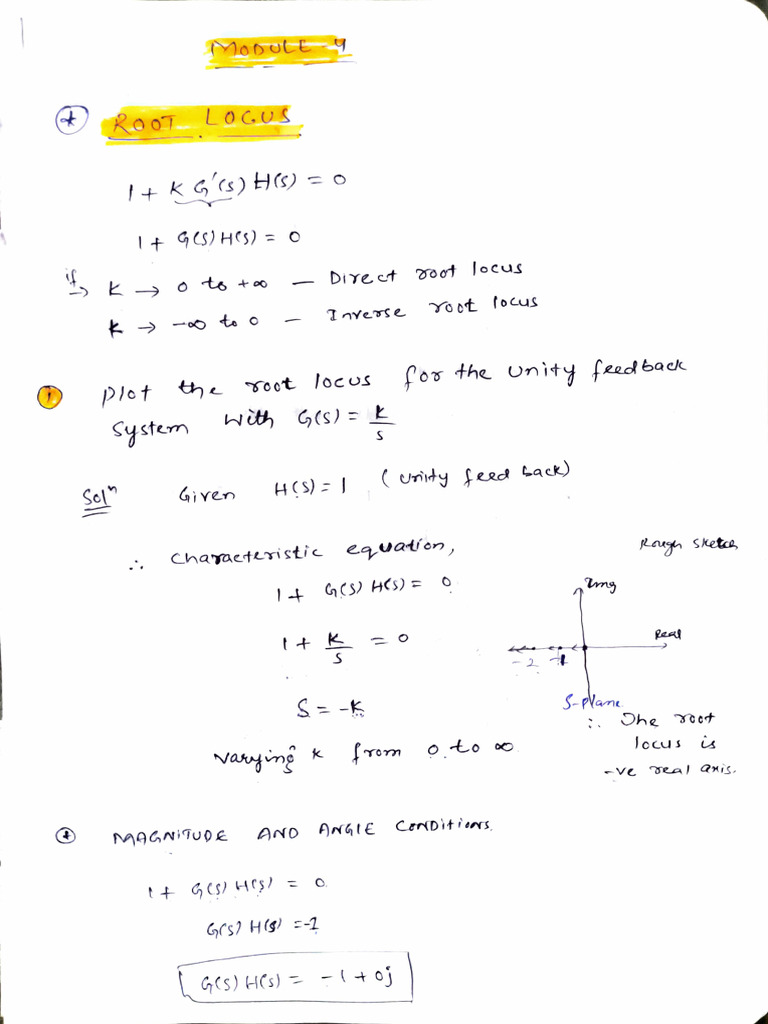 MODULE-4
* ROOT LOCUS
1 + K G'(s) H(s) = 0
1 + G(s) H(s) = 0
if → K → 0 to +∞ — Direct root locus
K → -∞ to 0 — Inverse root locus
1 Plot the root locus for the unity feedback
system with G(s) = K/s
Solⁿ Given H(s) = 1 (unity feed back)
∴ Characteristic equation,
1 + G(s) H(s) = 0
1 + K/s = 0
S = -K
Varying K from 0 to ∞
Rough sketch
Img
Real
-2 -1
S-plane
∴ The root
locus is
-ve real axis.
* MAGNITUDE AND ANGLE CONDITIONS.
1 + G(s) H(s) = 0
G(s) H(s) = -1
G(s) H(s) = -1 + 0j